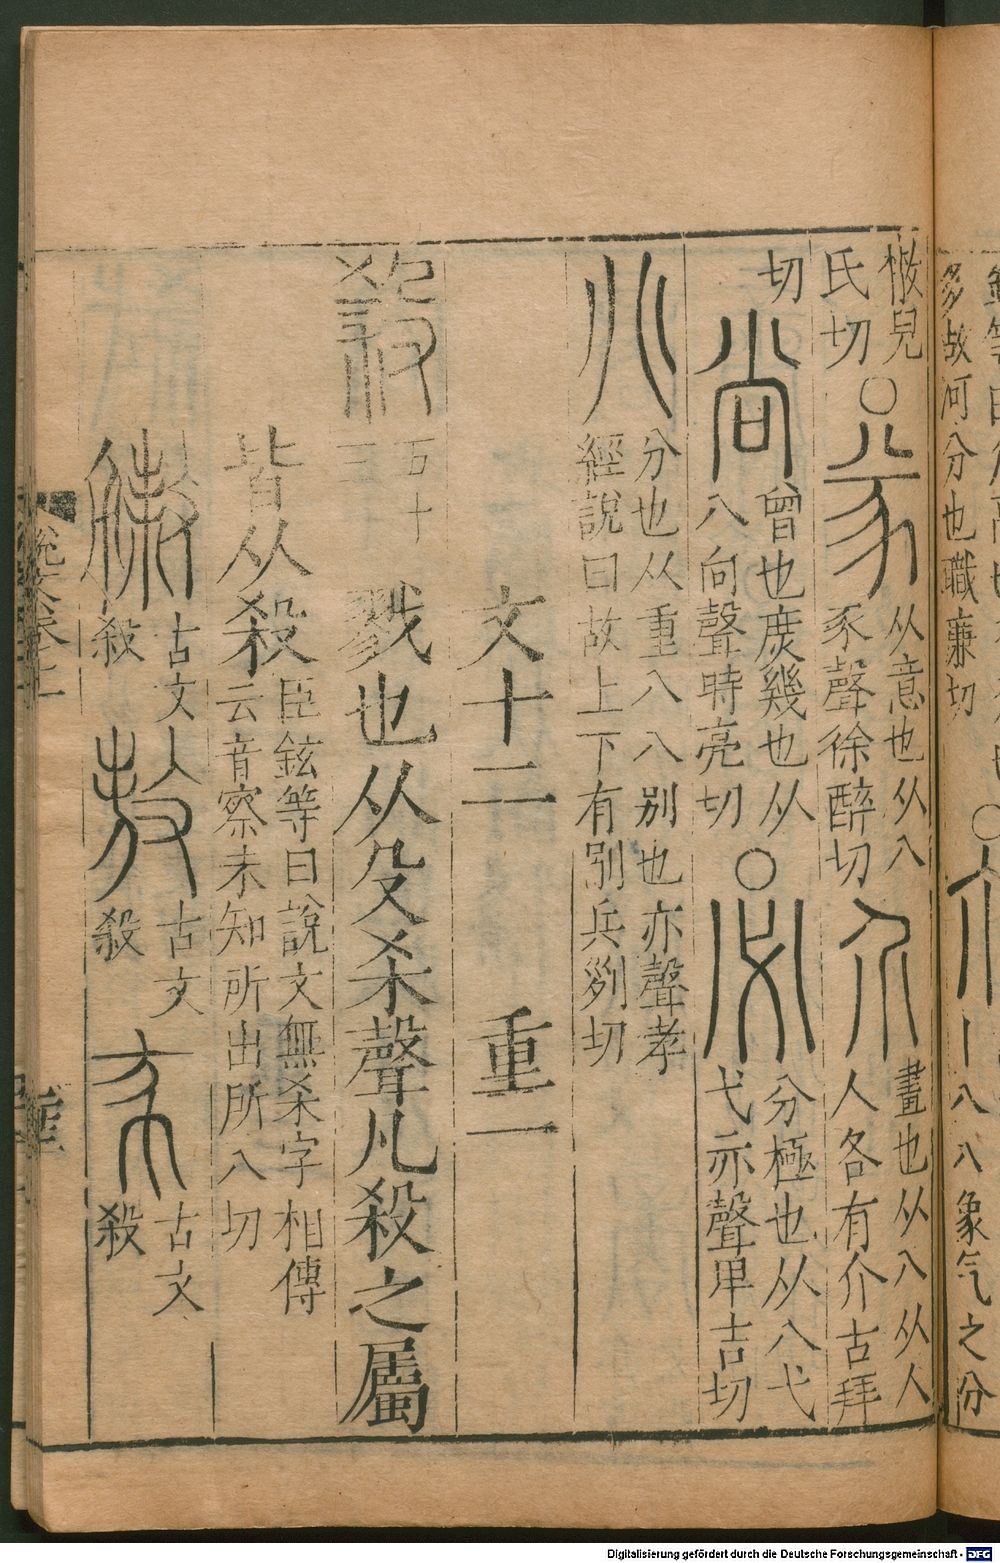 多故何分也職廉切○介丨八八象气之分
兒氏切○㒸从意也从八豕聲徐醉切介畫也从八从人人各有介古拜
切尚曾也庻幾也从八向聲時亮切○必分極也从八弋弋亦聲卑吉切
𠔁分也从重八八别也亦聲孝經說曰故上下有别兵列切
文十二 重一
殺五十三戮也从殳杀聲凡殺之屬
皆从殺臣鉉等曰說文無杀字相傳云音察未知所出所八切
古文殺 古文殺 古文殺